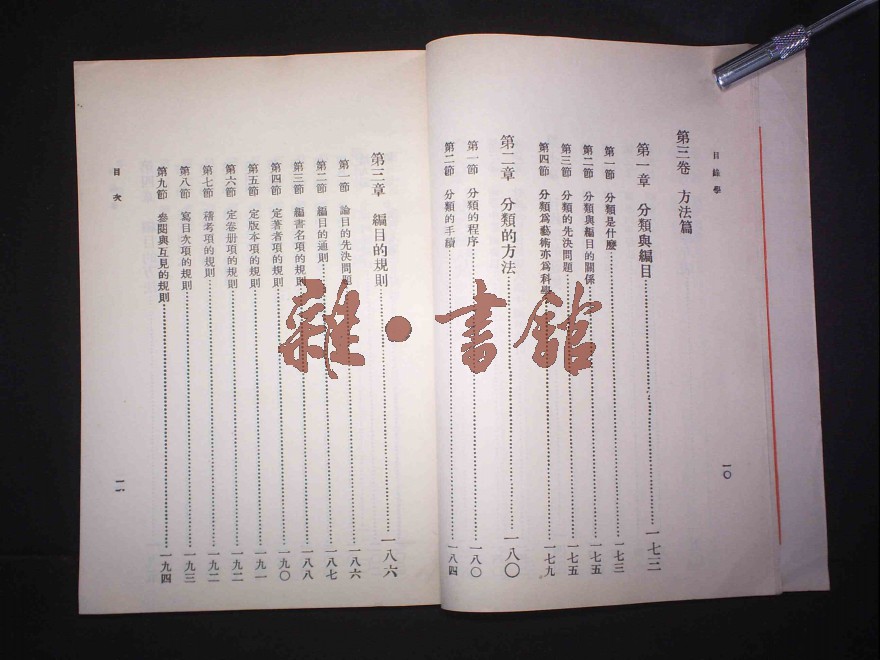 目錄學
第三卷 方法篇
第一章 分類與編目……一七三
第一節 分類是什麼……一七三
第二節 分類與編目的關係……一七五
第三節 分類的先決問題……一七五
第四節 分類爲藝術亦爲科學……一七九
第二章 分類的方法……一八〇
第一節 分類的程序……一八〇
第二節 分類的手續……一八四
一〇
第三章 編目的規則……一八六
第一節 論目的先決問題……一八六
第二節 編目的通則……一八七
第三節 編書名項的規則……一八八
第四節 定著者項的規則……一九〇
第五節 定版本項的規則……一九一
第六節 定卷册項的規則……一九二
第七節 稽考項的規則……一九二
第八節 寫目次項的規則……一九三
第九節 參閱與互見的規則……一九四
目次
雜·書館